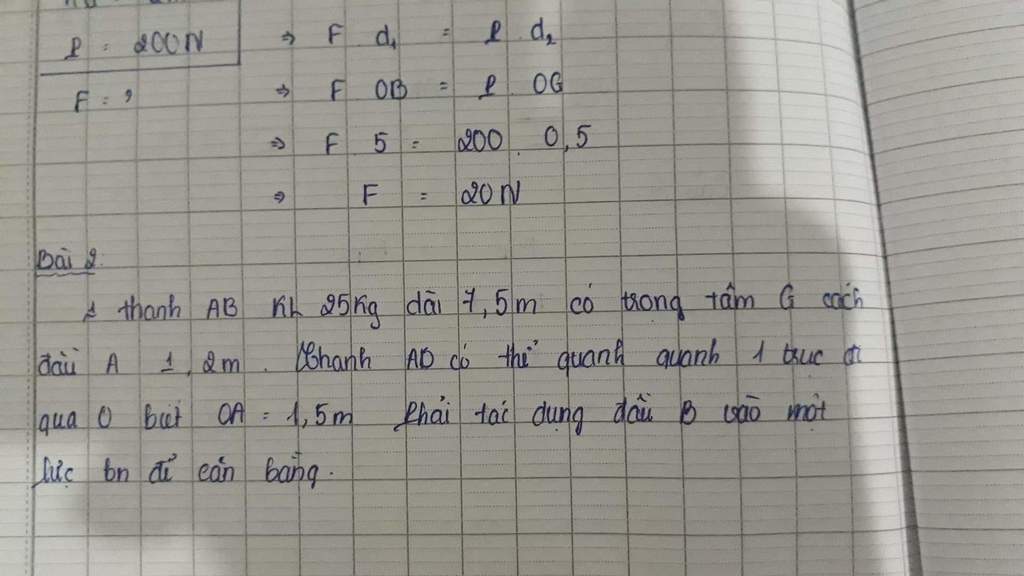 P = 200N ⇒ F d₁ = P d₂
F = ? ⇒ F OB = P OG
⇒ F 5 = 200 . 0,5
⇒ F = 20N
Bài 2.
1 thanh AB KL 25Kg dài 7,5m có trọng tâm G cách
đầu A 1,2m. Thanh AB có thể quanh quanh 1 trục đi
qua O biết OA = 1,5m Phải tác dụng đầu B vào một
lực bn để cân bằng.